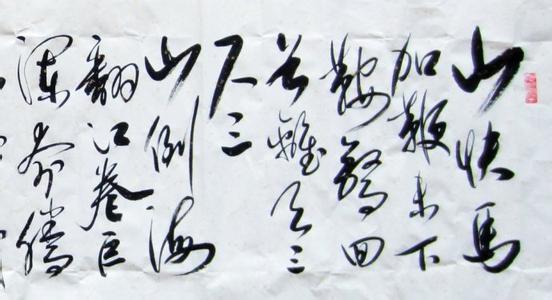 山快馬
加鞭未下
鞍驚回
首離天三
尺三
山倒海
翻江卷巨
瀾奔騰